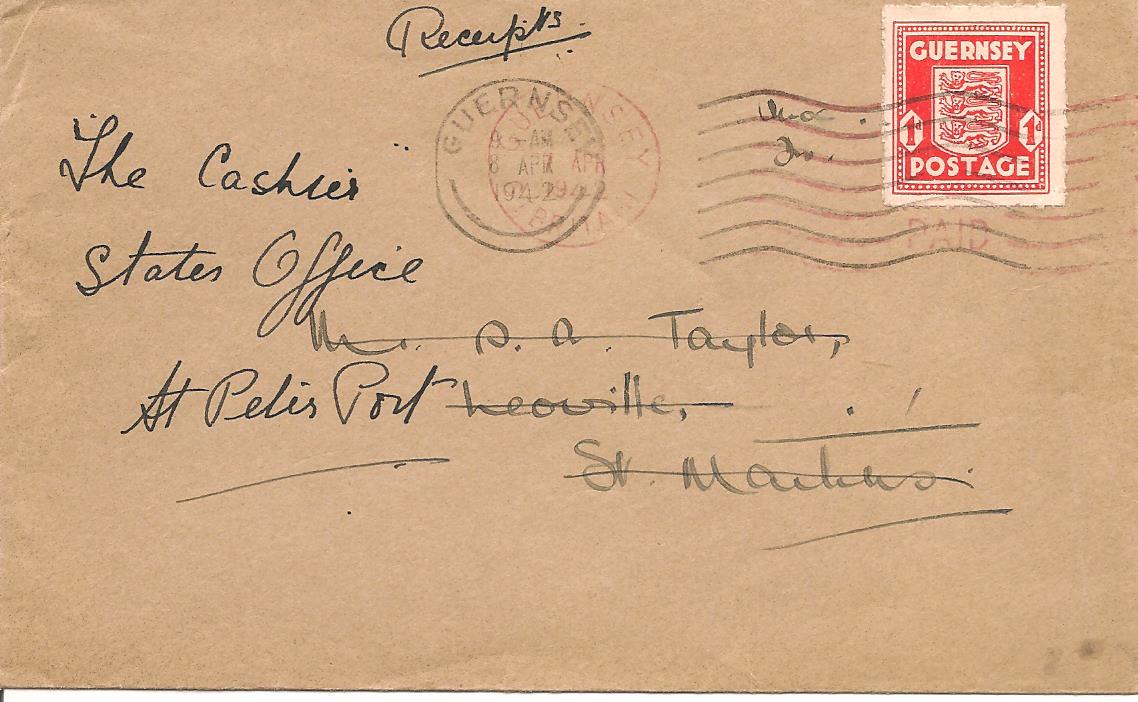 Receipts
GUERNSEY
1d 1d
POSTAGE
GUERNSEY
AM
8 APR
1942
APR
PAID
"The Cashier"
States Office
Mr. D. A. Taylor,
St Peter Port Leoville,
St. Martins